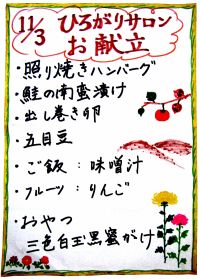 11/3 ひろがりサロン
お献立
・照り焼きハンバーグ
・鮭の南蛮漬け
・出し巻き卵
・五目豆
・ご飯：味噌汁
・フルーツ：りんご
・おやつ
三色白玉黒蜜がけ